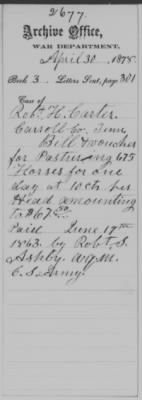 2677.
Archive Office,
WAR DEPARTMENT,
April 30, 1878.
Book 3. Letters Sent, page 301
Case of
Robt. H. Carter.
Carroll Co. Tenn
Bill & voucher
for Pasturing 675
Horses for one
day at 10cts per
Head amounting
to $67.50
Paid June 17th
1863. by Robt. S.
Ashby. A.Q.M.
C.S. Army.